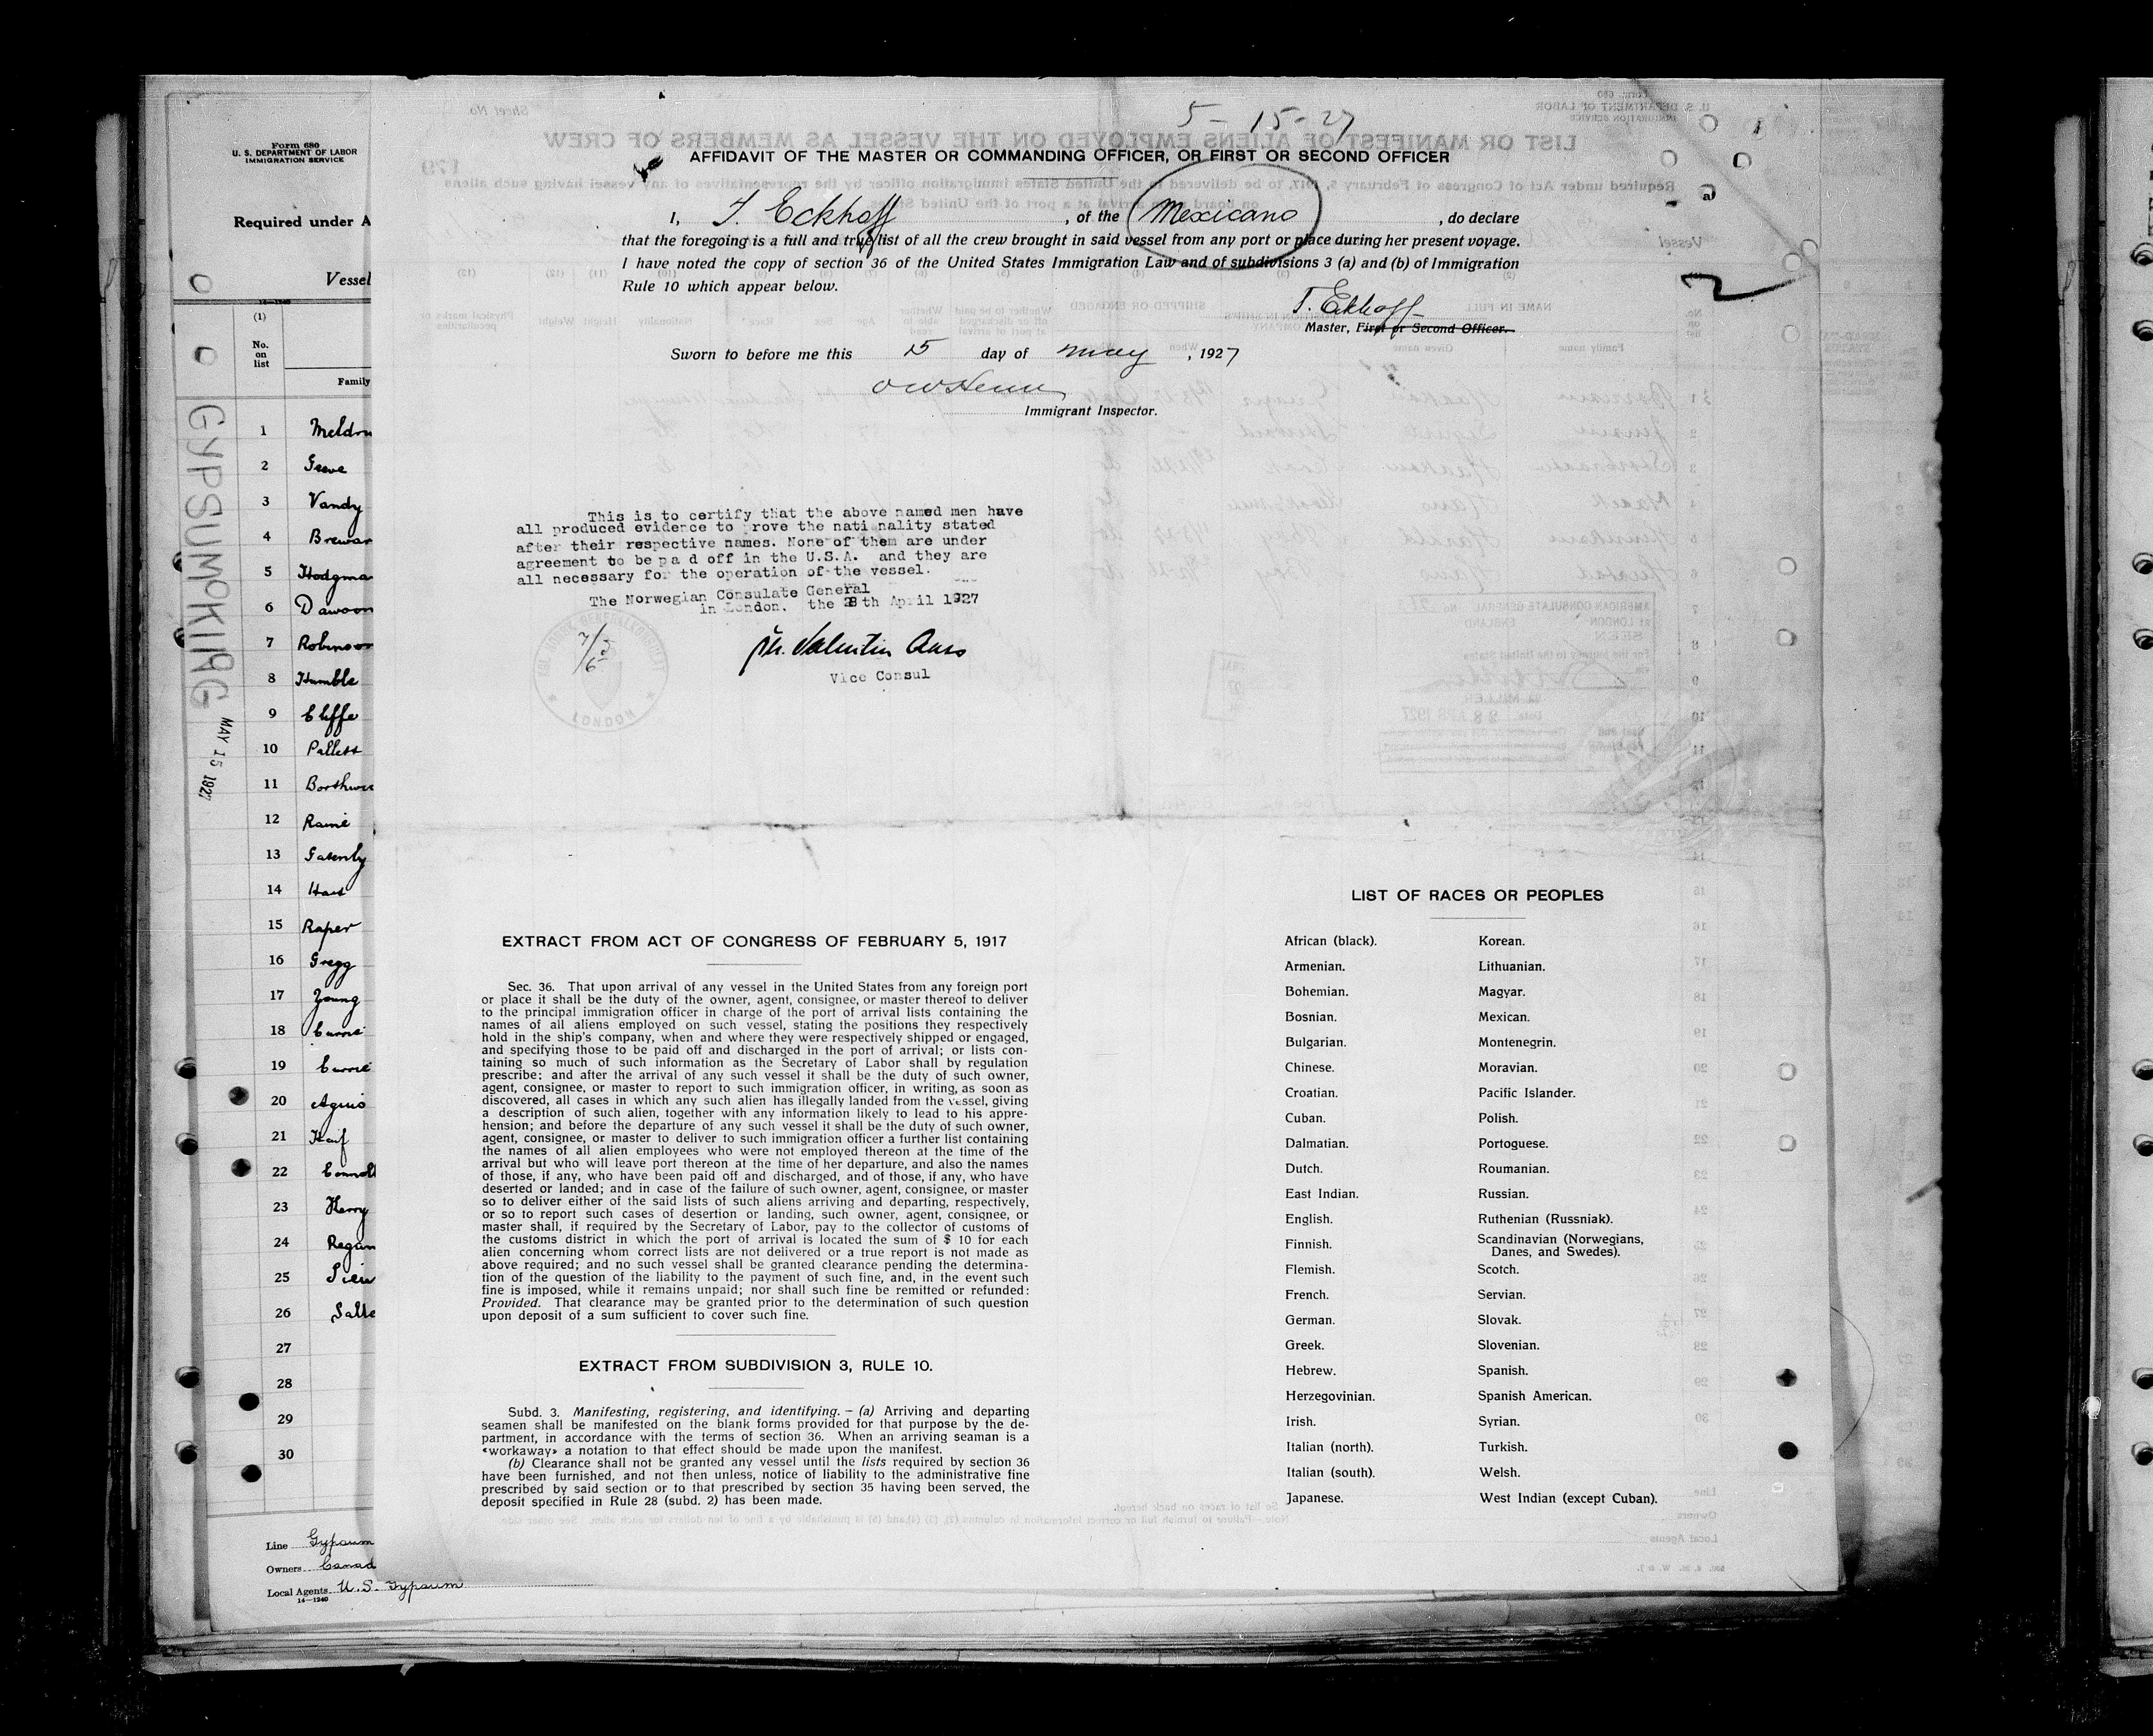 Form 680
U. S. DEPARTMENT OF LABOR
IMMIGRATION SERVICE
Required under A
Vessel
14—1240
(1)
No.
on
list
Family
GYPSUM KING
MAY 15 1927
1 Meldru
2 Geeve
3 Vandy
4 Brewar
5 Hodgma
6 Dawson
7 Robinson
8 Humble
9 Cliffe
10 Pallett
11 Borthwic
12 Raine
13 Gatenby
14 Hart
15 Raper
16 Gregg
17 Young
18 Currie
19 Currie
20 Agius
21 Haif
22 Connoll
23 Henry
24 Regan
25
26 Salte
27
28
29
30
Line Gypsum
Owners Canad
Local Agents U.S. Gypsum
14—1240
5-15-27
AFFIDAVIT OF THE MASTER OR COMMANDING OFFICER, OR FIRST OR SECOND OFFICER
I, T. Eckhoff, of the Mexicano, do declare
that the foregoing is a full and true list of all the crew brought in said vessel from any port or place during her present voyage.
I have noted the copy of section 36 of the United States Immigration Law and of subdivisions 3 (a) and (b) of Immigration
Rule 10 which appear below.
T. Eckhoff
Master, First or Second Officer.
Sworn to before me this 15 day of May, 1927
Immigrant Inspector.
This is to certify that the above named men have
all produced evidence to prove the nati nality stated
after their respective names. None of them are under
agreement to be pa d off in the U.S.A. and they are
all necessary for the operation of the vessel.
The Norwegian Consulate General
in London. the 28th April 1927
LONDON
Vice Consul
EXTRACT FROM ACT OF CONGRESS OF FEBRUARY 5, 1917
Sec. 36. That upon arrival of any vessel in the United States from any foreign port
or place it shall be the duty of the owner, agent, consignee, or master thereof to deliver
to the principal immigration officer in charge of the port of arrival lists containing the
names of all aliens employed on such vessel, stating the positions they respectively
hold in the ship's company, when and where they were respectively shipped or engaged,
and specifying those to be paid off and discharged in the port of arrival; or lists con-
taining so much of such information as the Secretary of Labor shall by regulation
prescribe: and after the arrival of any such vessel it shall be the duty of such owner,
agent, consignee, or master to report to such immigration officer, in writing, as soon as
discovered, all cases in which any such alien has illegally landed from the vessel, giving
a description of such alien, together with any information likely to lead to his appre-
hension; and before the departure of any such vessel it shall be the duty of such owner,
agent, consignee, or master to deliver to such immigration officer a further list containing
the names of all alien employees who were not employed thereon at the time of the
arrival but who will leave port thereon at the time of her departure, and also the names
of those, if any, who have been paid off and discharged, and of those, if any, who have
deserted or landed; and in case of the failure of such owner, agent, consignee, or master
so to deliver either of the said lists of such aliens arriving and departing, respectively,
or so to report such cases of desertion or landing, such owner, agent, consignee, or
master shall, if required by the Secretary of Labor, pay to the collector of customs of
the customs district in which the port of arrival is located the sum of $ 10 for each
alien concerning whom correct lists are not delivered or a true report is not made as
above required; and no such vessel shall be granted clearance pending the determina-
tion of the question of the liability to the payment of such fine, and, in the event such
fine is imposed, while it remains unpaid; nor shall such fine be remitted or refunded:
Provided. That clearance may be granted prior to the determination of such question
upon deposit of a sum sufficient to cover such fine.
EXTRACT FROM SUBDIVISION 3, RULE 10.
Subd. 3. Manifesting, registering, and identifying. — (a) Arriving and departing
seamen shall be manifested on the blank forms provided for that purpose by the de-
partment, in accordance with the terms of section 36. When an arriving seaman is a
«workaway» a notation to that effect should be made upon the manifest.
(b) Clearance shall not be granted any vessel until the lists required by section 36
have been furnished, and not then unless, notice of liability to the administrative fine
prescribed by said section or to that prescribed by section 35 having been served, the
deposit specified in Rule 28 (subd. 2) has been made.
LIST OF RACES OR PEOPLES
African (black). Korean.
Armenian. Lithuanian.
Bohemian. Magyar.
Bosnian. Mexican.
Bulgarian. Montenegrin.
Chinese. Moravian.
Croatian. Pacific Islander.
Cuban. Polish.
Dalmatian. Portoguese.
Dutch. Roumanian.
East Indian. Russian.
English. Ruthenian (Russniak).
Finnish. Scandinavian (Norwegians,
Danes, and Swedes).
Flemish. Scotch.
French. Servian.
German. Slovak.
Greek. Slovenian.
Hebrew. Spanish.
Herzegovinian. Spanish American.
Irish. Syrian.
Italian (north). Turkish.
Italian (south). Welsh.
Japanese. West Indian (except Cuban).